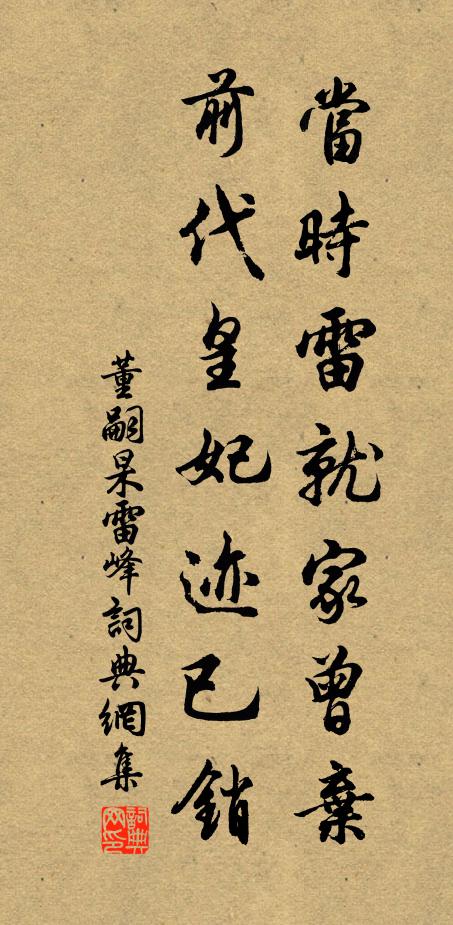 當時雷就家曾棄
前代皇妃迹已銷
董嗣杲雷峰詞典網集
詞典网印